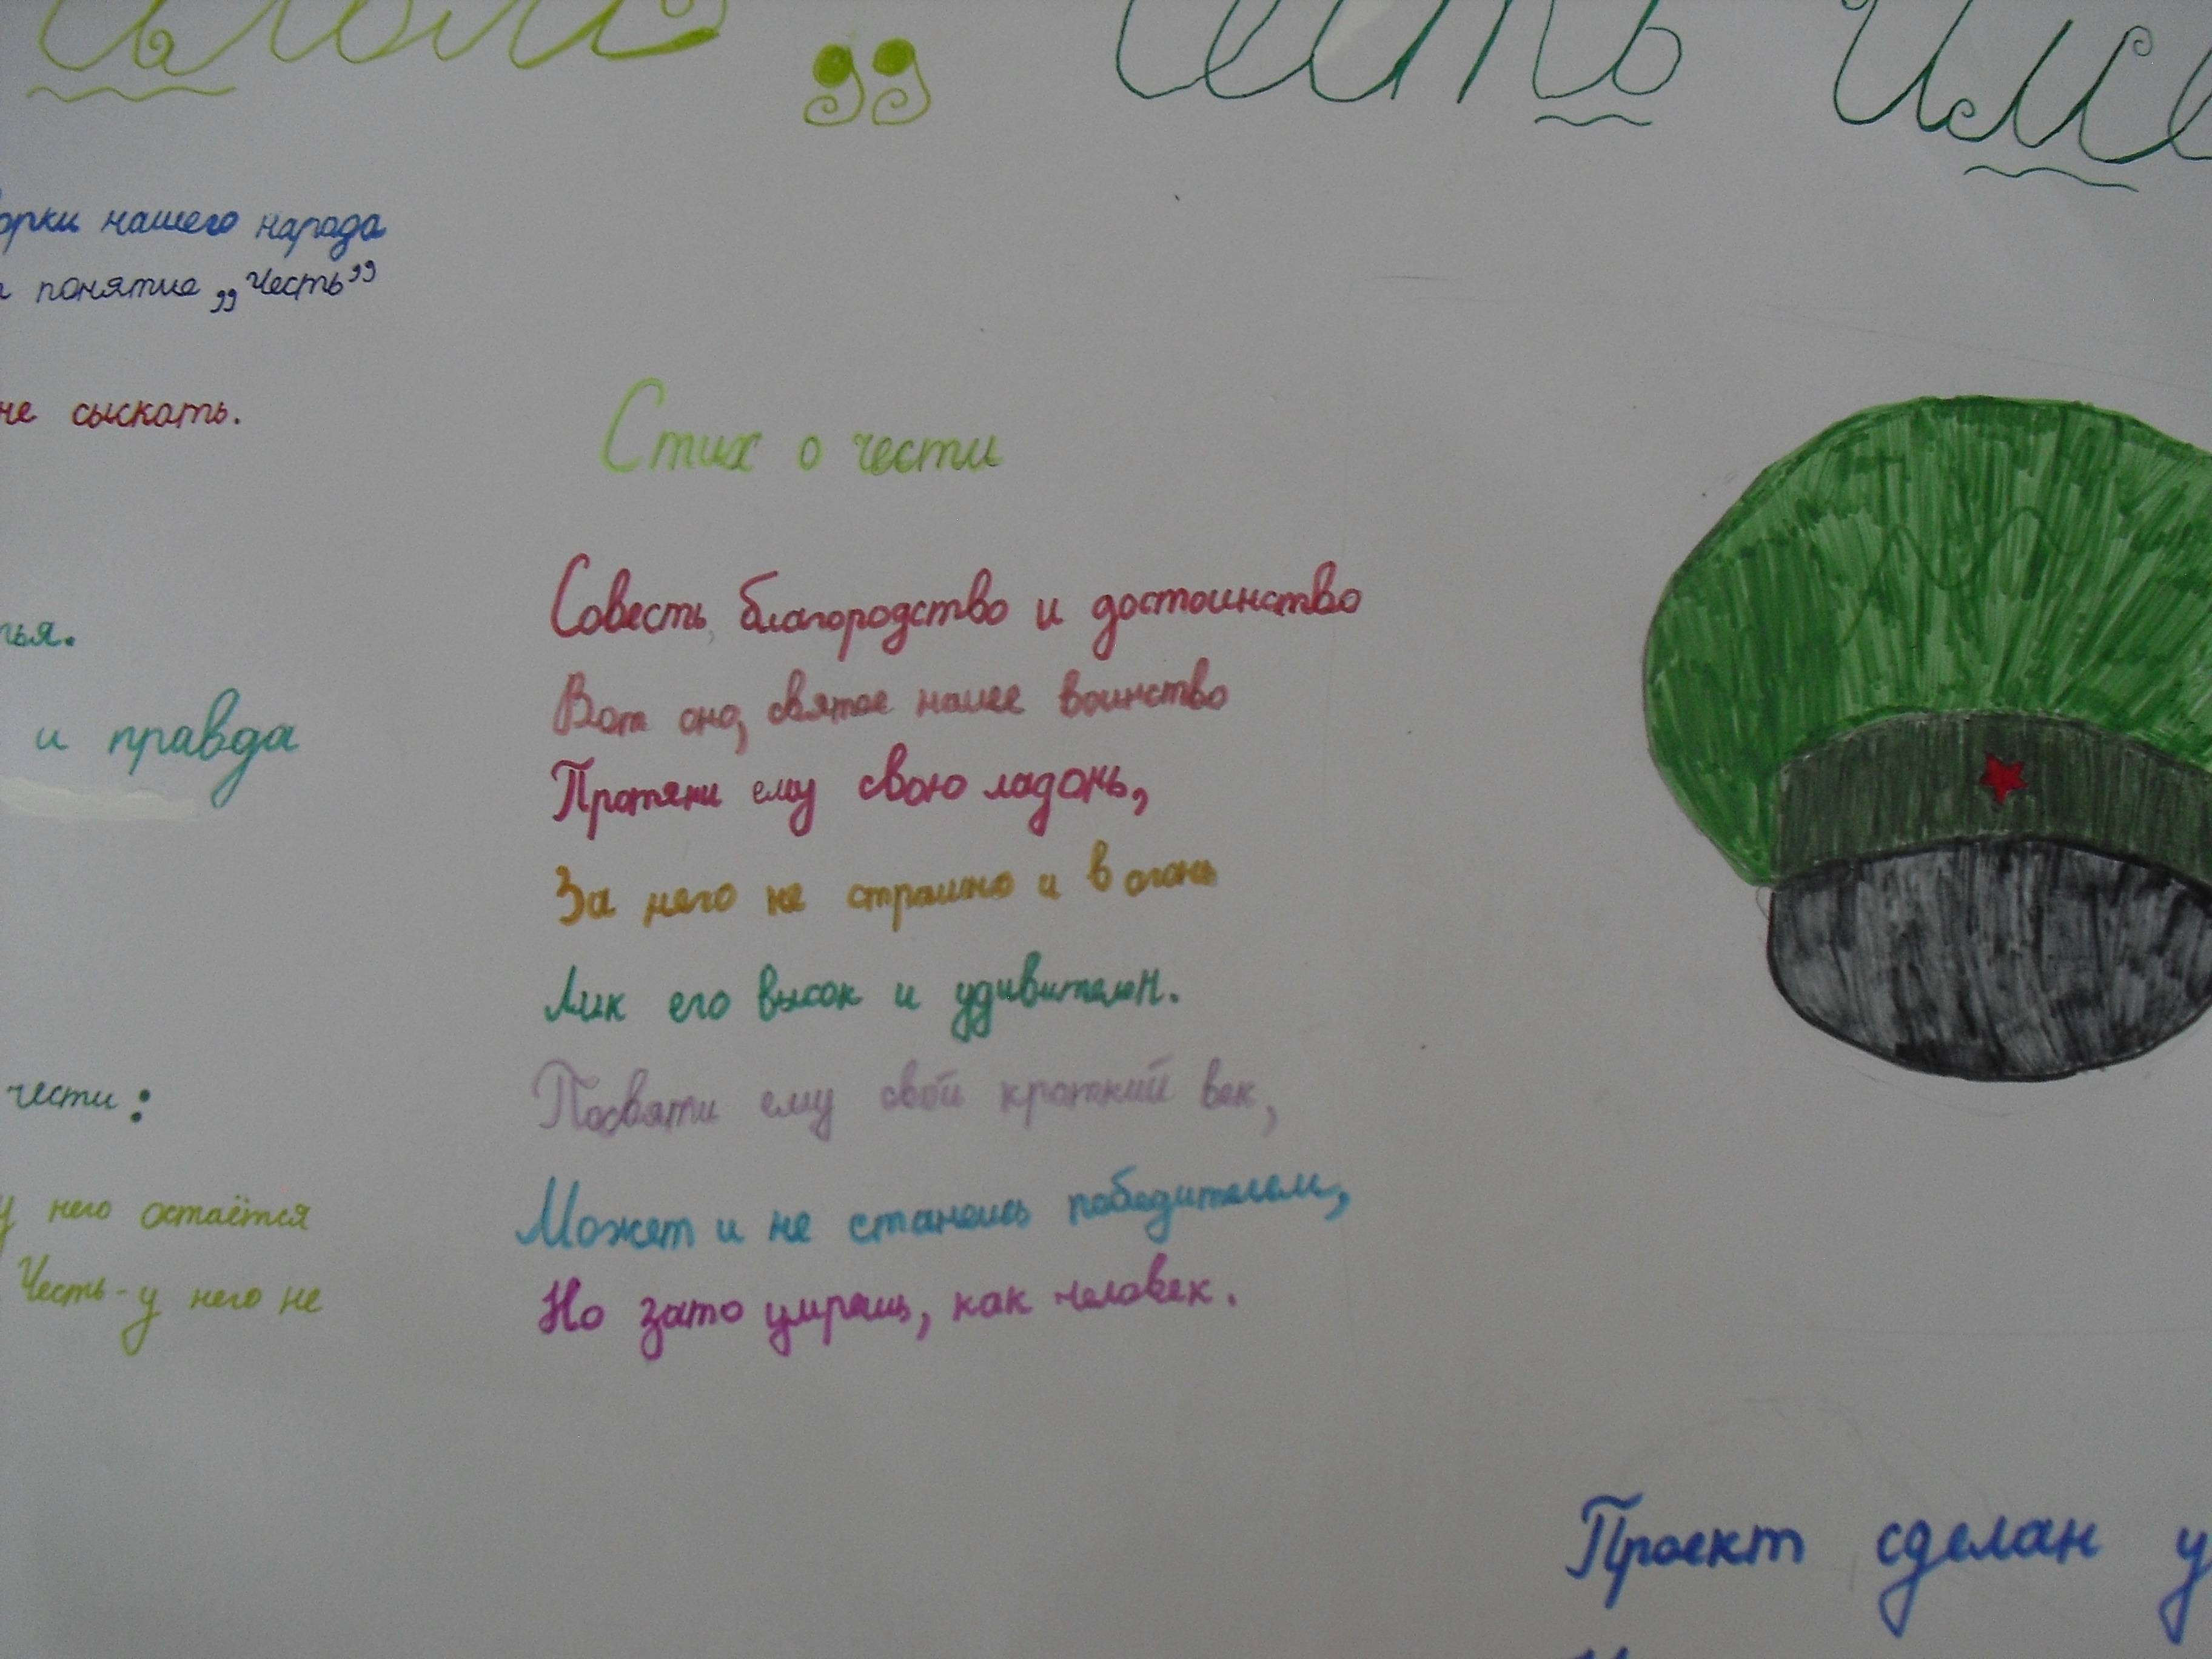 „ Честь име
нашего народа
понятие „Честь”
не сыскать.
Стих о чести
Совесть, благородство и достоинство
Вот оно, святое наше воинство
Протяни ему свою ладонь,
За него не страшно и в огонь
Лик его высок и удивителен.
Посвяти ему свой кроткий век,
Может и не станешь победителем,
Но зато умрёшь, как человек.
и правда
чести:
у него остаётся
Честь - у него не
Проект сделан у